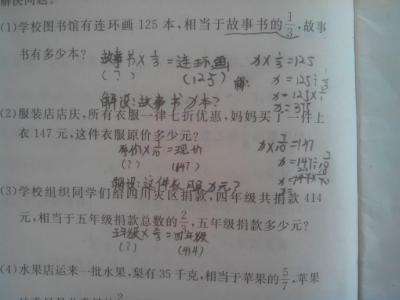 解决问题。
(1)学校图书馆有连环画 125 本,相当于故事书的1/3,故事
书有多少本? 故事书×1/3=连环画 x×1/3=125
(?) (125) 解: x=125÷
解设:故事书x本? x=125×
x=375
(2)服装店店庆,所有衣服一律七折优惠,妈妈买了一件上
衣 147 元,这件衣服原价多少元? x×7/10=147
原价×7/10=现价 x=147÷
(?) (147)
解设:这件衣原x元?
(3)学校组织同学们给四川灾区捐款,四年级共捐款 414
元,相当于五年级捐款总数的2/,五年级捐款多少元?
五年级×2/=四年级
(?) (414)
(4)水果店运来一批水果,梨有 35 千克,相当于苹果的5/7,苹果